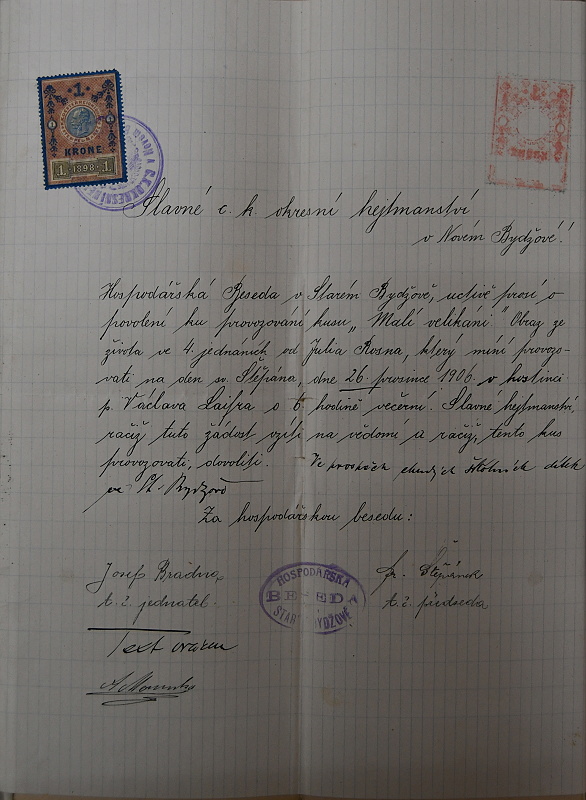 1
KRONE
1. 1898. 1.
Slavné c. k. okresní hejtmanství
v Novém Bydžově!
Hospodářská Beseda v Starém Bydžově, uctivě prosí o
povolení ku provozování kusu „Malí velikáni" Obraz ze
života ve 4. jednáních od Julia Rosna, který míní provozo-
vati na den sv. Štěpána, dne 26. prosince 1906 v hostinci
p. Václava Laifra o 6 hodině večerní. Slavné hejtmanství,
račiž tuto žádost vzíti na vědomí a račiž, tento kus
provozovati, dovoliti. Ve prospěch chudých školních dítek
ve St. Bydžově
Za hospodářskou besedu:
Josef Brádna, fr. Štěpánek
t. č. jednatel. t. č. předseda
HOSPODÁŘSKÁ
BESEDA
STARÝ BYDŽOVĚ
Text vrácen